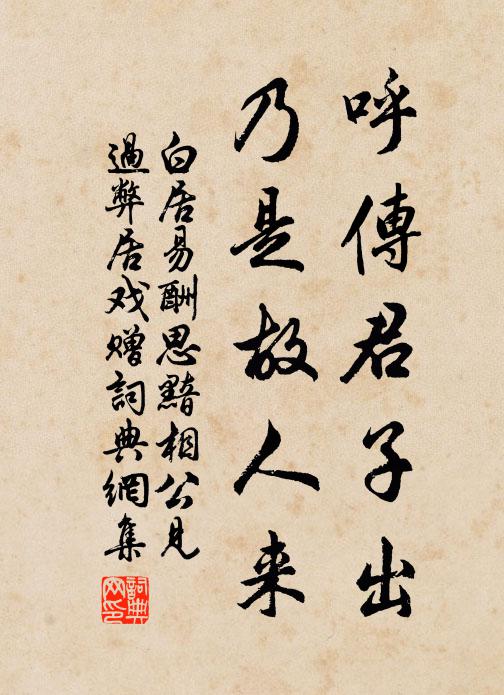 呼傳君子出
乃是故人来
白居易酬思黯相公見
過弊居戏赠詞典網集
詞典网印